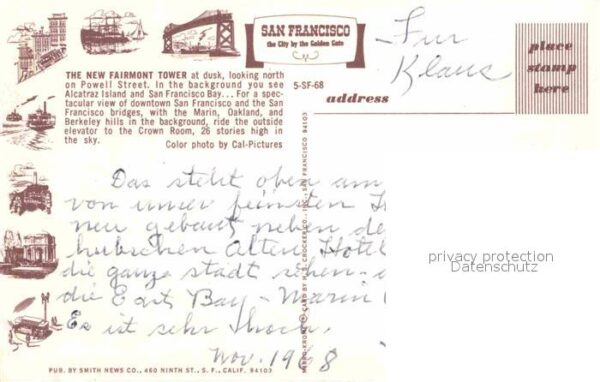 SAN FRANCISCO
the City by the Golden Gate
Für
Klaus
place
stamp
here
THE NEW FAIRMONT TOWER at dusk, looking north
on Powell Street. In the background you see
Alcatraz Island and San Francisco Bay... For a spec-
tacular view of downtown San Francisco and the San
Francisco bridges, with the Marin, Oakland, and
Berkeley hills in the background, ride the outside
elevator to the Crown Room, 26 stories high in
the sky.
Color photo by Cal-Pictures
5-SF-68
address
Das steht oben am
von unser feinsten
neu gebaut neben de
hubschen Alten Hotel
die ganze stadt sehen
die East Bay - Marin
Es ist sehr
Nov. 1968
CARD BY H. S. CROCKER CO., INC., SAN FRANCISCO 94103
privacy protection
Datenschutz
PUB. BY SMITH NEWS CO., 460 NINTH ST., S. F., CALIF. 94103